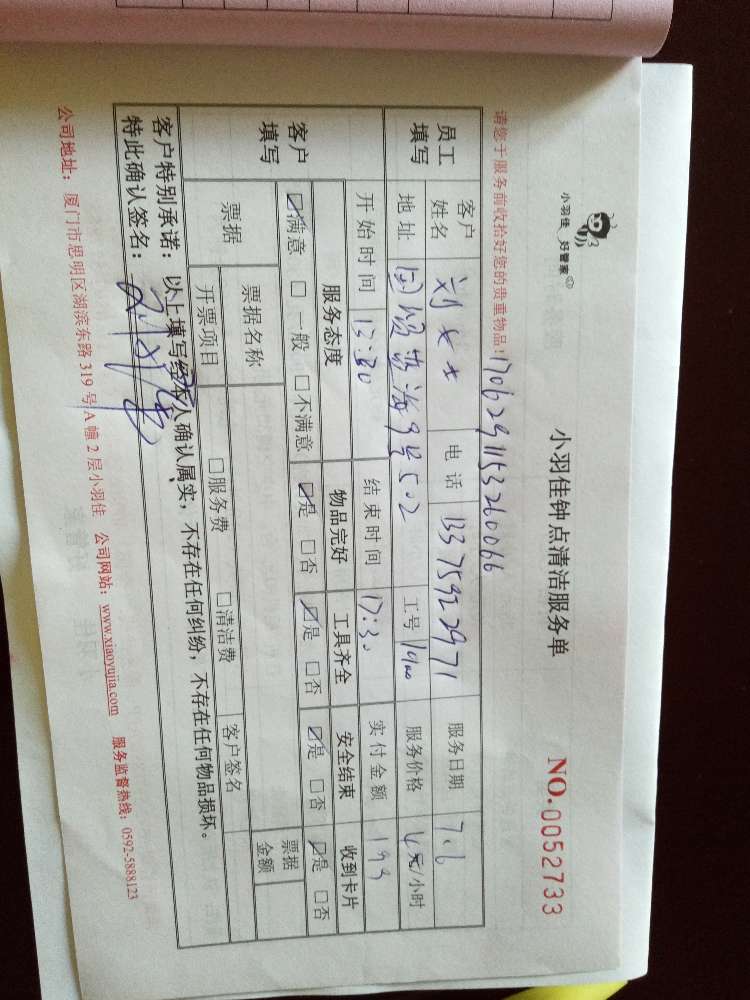 小羽佳 好管家
小羽佳钟点清洁服务单
NO. 0052733
请您于服务前收拾好您的贵重物品！1706291153260066
员工填写 客户姓名 刘 电话 13375922971 服务日期 7.6
地址 海9号502 工号 服务价格 4元/小时
开始时间 13:30 结束时间 17:30 实付金额 193
客户填写 服务态度 物品完好 工具齐全 安全结束 收到卡片
☑满意 □一般 □不满意 ☑是 □否 ☑是 □否 ☑是 □否 ☑是 □否
票据 票据名称 票据金额
开票项目 □服务费 □清洁费 客户签名
客户特别承诺：以上填写经本人确认属实，不存在任何纠纷，不存在任何物品损坏。
特此确认签名：
公司地址：厦门市思明区湖滨东路319号A幢2层小羽佳 公司网站：www.xiaoyujia.com 服务监督热线：0592-5888123